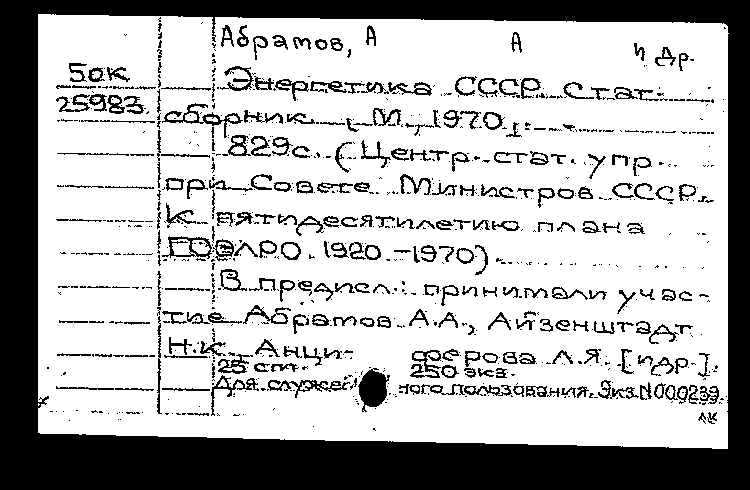 Абрамов, А А и др.
50к Энергетика СССР. Стат.
25983 сборник. , М., 1970 г. -
829с. (Центр. стат. упр.
при Совете Министров СССР.
К пятидесятилетию плана
ГОЭЛРО. 1920-1970).
В предисл.: принимали учас-
тие Абрамов А.А., Айзенштадт
Н.К., Анци- ферова Л.Я. [и др.].
25 см. 250 экз.
Для служеб ного пользования. Экз.N000239.